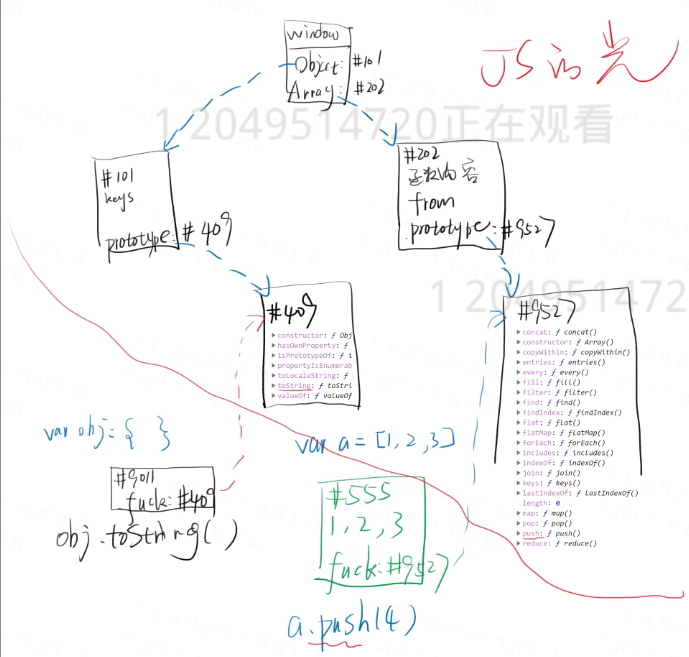 window
Object: #101
Array: #202
JS的光
1 2049514720正在观看
#101
keys
prototype: #409
#202
函数内容
from
prototype: #9527
1 204951472
#409
▸ constructor: ƒ Obj
▸ hasOwnProperty: ƒ
▸ isPrototypeOf: ƒ i
▸ propertyIsEnumerab
▸ toLocaleString: ƒ
▸ toString: ƒ toStri
▸ valueOf: ƒ valueOf
#9527
▸ concat: ƒ concat()
▸ constructor: ƒ Array()
▸ copyWithin: ƒ copyWithin()
▸ entries: ƒ entries()
▸ every: ƒ every()
▸ fill: ƒ fill()
▸ filter: ƒ filter()
▸ find: ƒ find()
▸ findIndex: ƒ findIndex()
▸ flat: ƒ flat()
▸ flatMap: ƒ flatMap()
▸ forEach: ƒ forEach()
▸ includes: ƒ includes()
▸ indexOf: ƒ indexOf()
▸ join: ƒ join()
▸ keys: ƒ keys()
▸ lastIndexOf: ƒ lastIndexOf()
length: 0
▸ map: ƒ map()
▸ pop: ƒ pop()
▸ push: ƒ push()
▸ reduce: ƒ reduce()
var obj = { }
#9011
fuck: #409
obj.toString()
var a = [1, 2, 3]
#555
1, 2, 3
fuck: #9527
a.push(4)